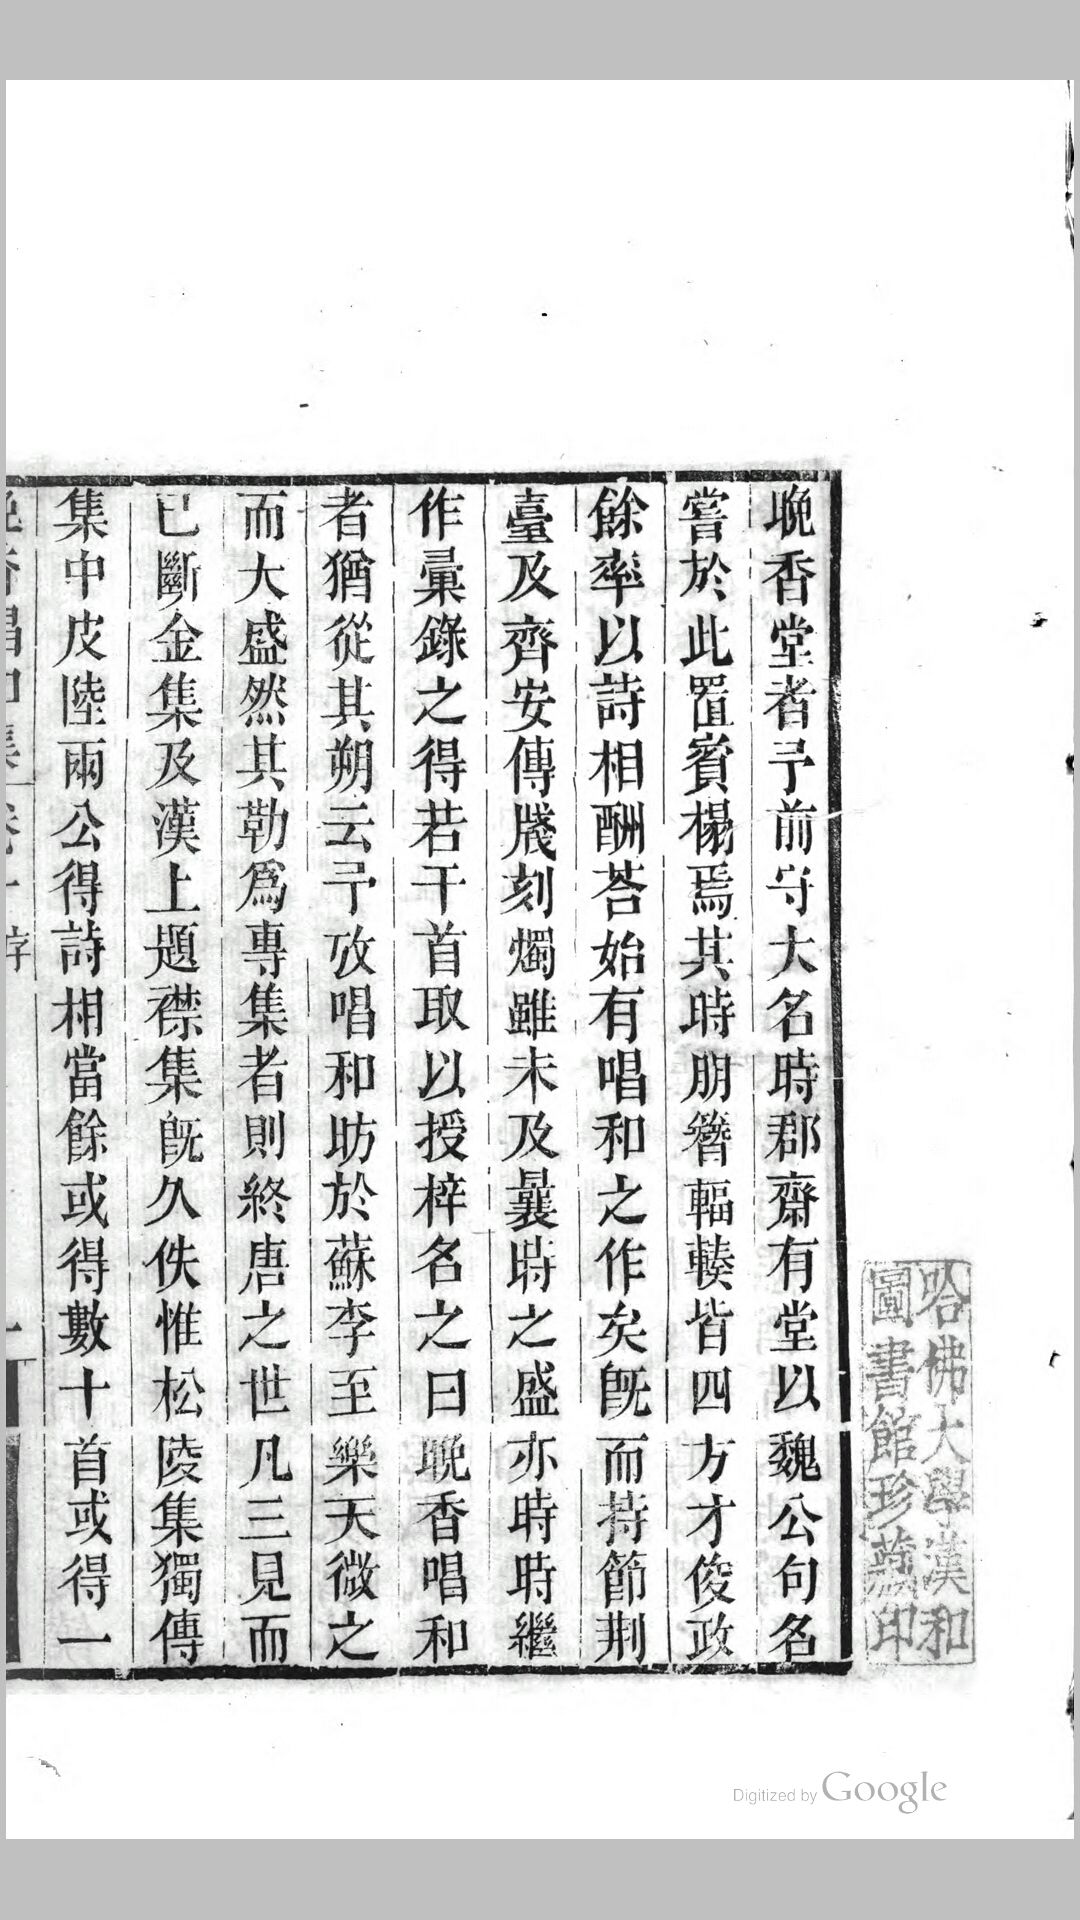 晚香堂者予前守大名時郡齋有堂以魏公句名
嘗於此置賓榻焉其時朋簪輻輳皆四方才俊政
餘率以詩相酬荅始有唱和之作矣旣而持節荆
臺及齊安傳牋刻燭雖未及曩時之盛亦時時繼
作彙錄之得若干首取以授梓名之曰晚香唱和
者猶從其朔云予攷唱和昉於蘇李至樂天微之
而大盛然其勒爲專集者則終唐之世凡三見而
已斷金集及漢上題襟集旣久佚惟松陵集獨傳
集中皮陸兩公得詩相當餘或得數十首或得一
哈佛大學漢和
圖書館珍藏印
Digitized by Google